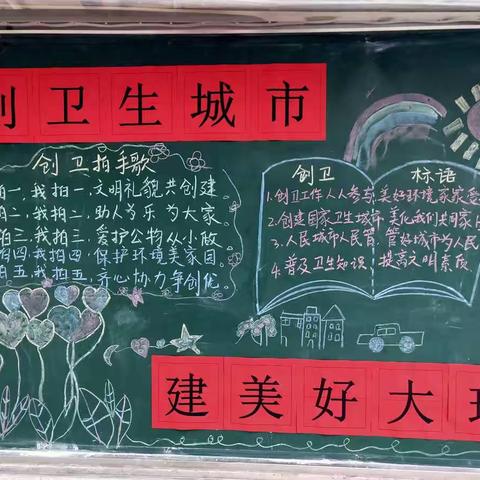 创卫生城市
创卫拍手歌
拍一,我拍一,文明礼貌共创建。
拍二,我拍二,助人为乐为大家。
拍三,我拍三,爱护公物从小做
拍四,我拍四,保护环境美家园。
拍五,我拍五,齐心协力争创优。
创卫 标语
1.创卫工作人人参与,美好环境家家受
2.创建国家卫生城市 美化我们共同家
3.人民城市人民管 管好城市为人民
4.普及卫生知识 提高文明素质
建美好大